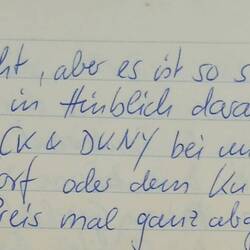 ht, aber es ist so s
in Hinblich dara
CK & DKNY bei un
orf oder dem Ku
reis mal ganz abg